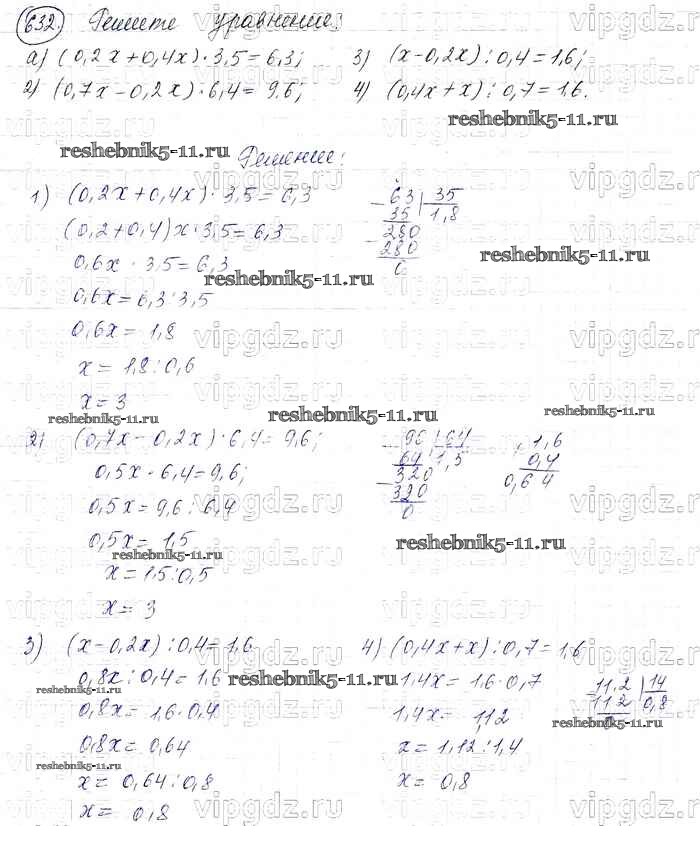 632. Решите уравнение:
а) (0,2x+0,4x)·3,5=6,3; 3) (x-0,2x):0,4=1,6;
2) (0,7x-0,2x)·6,4=9,6; 4) (0,4x+x):0,7=1,6.
reshebnik5-11.ru
reshebnik5-11.ru
Решение:
1) (0,2x+0,4x)·3,5=6,3
(0,2+0,4)x·3,5=6,3
0,6x·3,5=6,3
0,6x=6,3:3,5
0,6x=1,8
x=1,8:0,6
x=3
63 | 35
35 | 1,8
280
280
0
reshebnik5-11.ru
reshebnik5-11.ru
reshebnik5-11.ru
reshebnik5-11.ru
reshebnik5-11.ru
2) (0,7x-0,2x)·6,4=9,6;
0,5x·6,4=9,6;
0,5x=9,6:6,4
0,5x=1,5
x=1,5:0,5
x=3
96 | 64
64 | 1,5
320
320
0
1,6
0,4
0,64
reshebnik5-11.ru
reshebnik5-11.ru
3) (x-0,2x):0,4=1,6
0,8x:0,4=1,6
0,8x=1,6·0,4
0,8x=0,64
x=0,64:0,8
x=0,8
reshebnik5-11.ru
reshebnik5-11.ru
reshebnik5-11.ru
4) (0,4x+x):0,7=1,6
1,4x=1,6·0,7
1,4x=1,12
x=1,12:1,4
x=0,8
11,2 | 14
11 2 | 0,8
0
reshebnik5-11.ru
vipgdz.ru